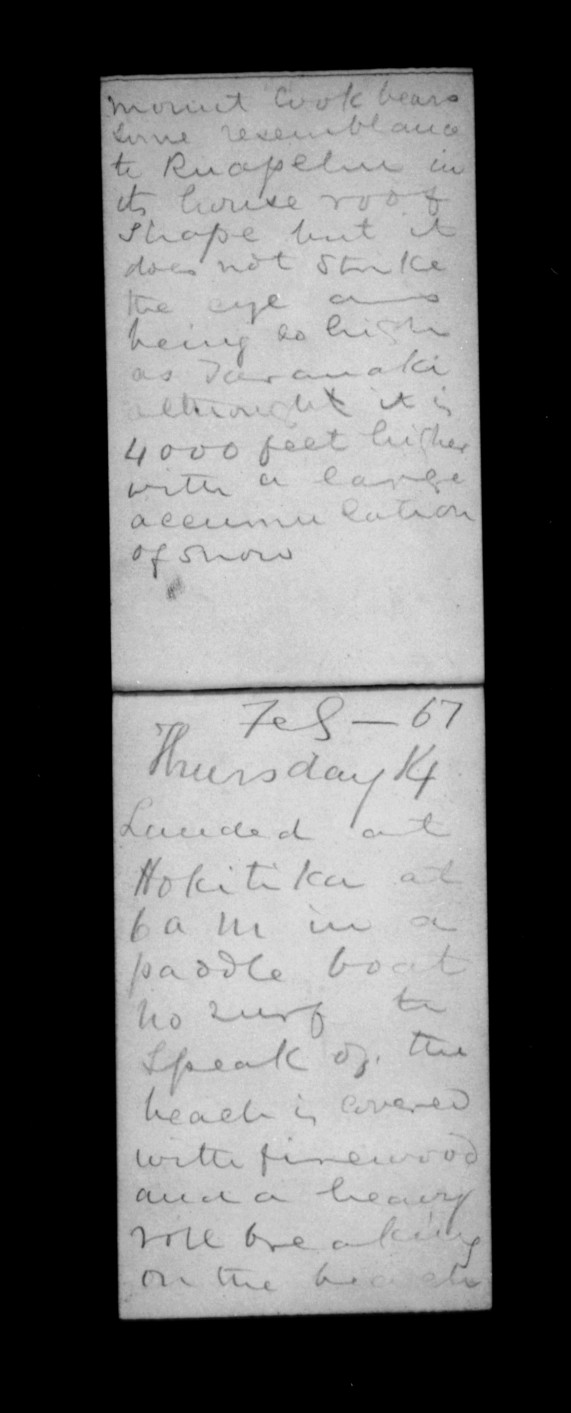 mount Cook bears
some resemblance
to Ruapehu in
its house roof
shape but it
does not strike
the eye as
being so high
as Taranaki
although it is
4000 feet higher
with a large
accumulation
of snow
Feb - 67
Thursday 14
Landed at
Hokitika at
6 a m in a
paddle boat
no surf to
speak of. the
beach is covered
with firewood
and a heavy
roll breaking
on the beach